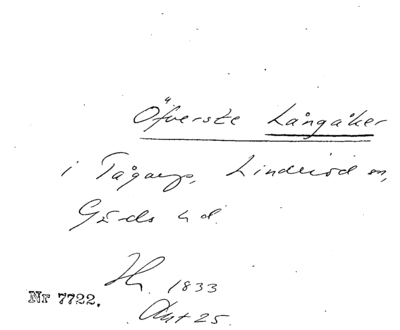 Öfverste Långåker
i Tågarp, Linderöd sn,
Gärds hd.
Hs. 1833
Nr 7722.
Akt 25.